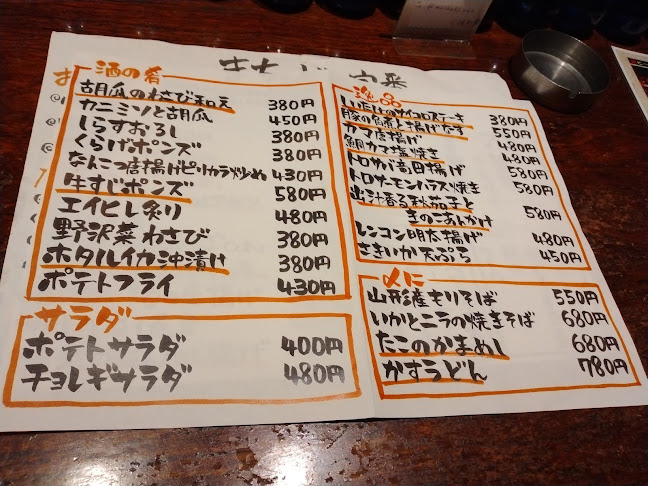 酒の肴
胡瓜のわさび和え 380円
カニミソと胡瓜 450円
しらすおろし 380円
くらげポンズ 380円
なんこつ唐揚げピリカラ炒め 430円
牛すじポンズ 580円
エイヒレ炙り 480円
野沢菜わさび 380円
ホタルイカ沖漬け 380円
ポテトフライ 430円
サラダ
ポテトサラダ 400円
チョレギサラダ 480円
逸品
しいたけのサイコロステーキ 380円
豚の角煮と揚げなす 550円
カマ唐揚げ 480円
鯛カマ塩焼き 480円
トロサバ竜田揚げ 580円
トロサーモンハラス焼き 580円
出汁香る秋茄子と
きのこあんかけ 580円
レンコン明太揚げ 480円
さきいか天ぷら 450円
〆に
山形産もりそば 550円
いかとニラの焼きそば 680円
たこのかまめし 680円
かすうどん 780円